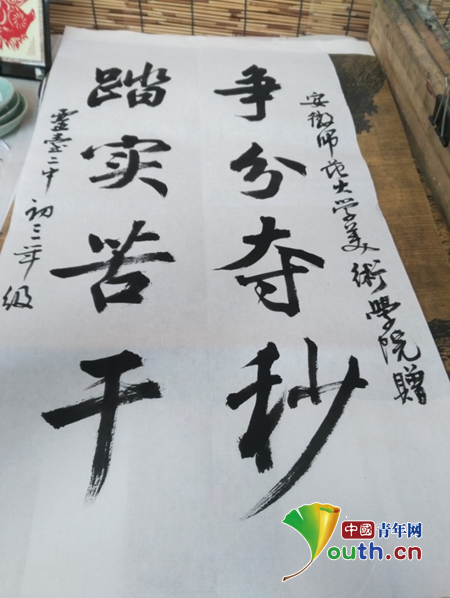 安徽师范大学美術學院贈
争分夺秒
踏实苦干
灵臺二中 初三年级
中國青年网
Youth.cn